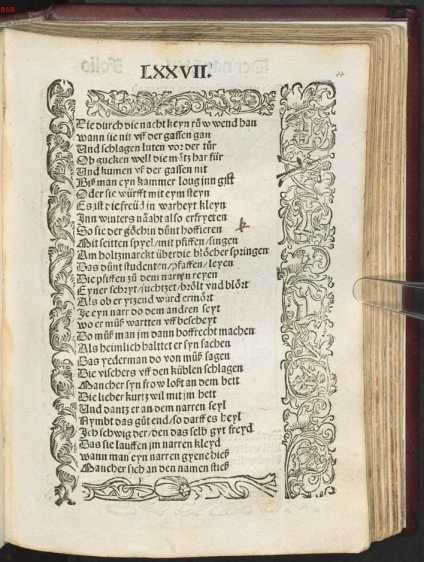 LXXVII.
Die durch die nacht keyn růw wend han
wann sie nit vff der gassen gan
Und schlagen luten vor der tür
Ob gucken well die mātz har für
Und kumen vß der gassen nit
Biß man eyn kammer loug inn gitt
Oder sie würfft mit eym steyn
Es ist die freüd in warheyt kleyn
Inn winters nåcht also erfryeren
So sie der göchin důnt hoffieren
Mit seitten spyel/mit pfiffen/singen
Am holtzmarckt über die blöcher springen
Das důnt studenten/pfaffen/leyen
Die pfiffen zů dem narren reyen
Eyner schryt/juchtzet/brölt vnd blört
Als ob er yetzend würd ermört
Je eyn narr do dem andren seyt
wo er můß wartten vff bescheyt
Do můß man jm dann hoffrecht machen
Als heimlich halttet er syn sachen
Das yederman do von můß sagen
Die vischers vff den kühlen schlagen
Mancher syn frow loßt an dem bett
Die lieber kurtzwil mit jm hett
Und dantz er an dem narren seyl
Nymbt das gůt end/so darff es heyl
Ich schwig der/den das selb gyt freyd
Das sie lauffen jm narren kleyd
wann man eyn narren gyene hieß
Mancher sich an den namen stieß